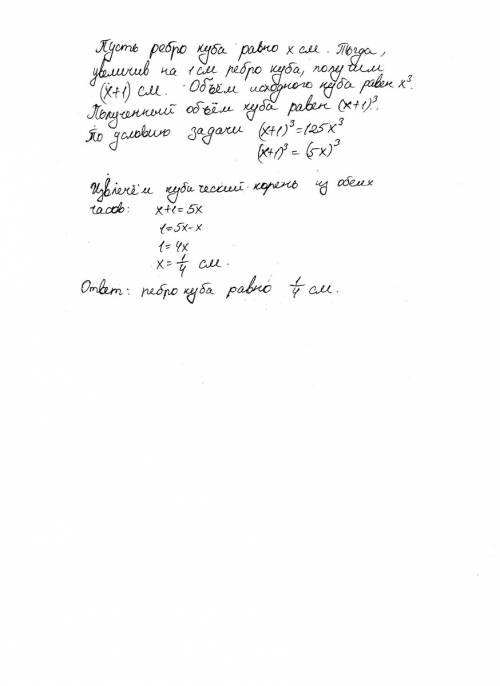 Пусть ребро куба равно x см. Тогда,
увеличив на 1 см ребро куба, получим
(x+1) см. Объём исходного куба равен x³.
Полученный объём куба равен (x+1)³.
По условию задачи (x+1)³=125x³
(x+1)³=(5x)³
Извлечём кубический корень из обеих
часов: x+1=5x
1=5x-x
1=4x
x=1/4 см.
Ответ: ребро куба равно 1/4 см.